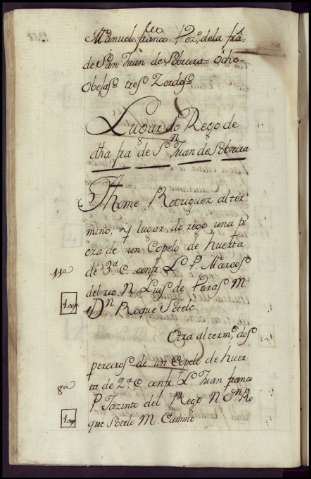 Manuel franco Vez.º de la fra.
de San Juan de Sobreira Ocho
Obejas tres Zerdos
Lugar do Rego de
dha fra. de Sn. Juan de Sobreira
Thome Rodriguez al ter
mino, y lugar do rego una pi
eza de un Copelo de huerta
de 3ª C confi. L. P. Marcos
del rio N. Luis de Paras M
Dn. Roque Sotelo
Otra al termo. dos
pereiros de un Copelo de huer
ta de 2ª C confi. L. Juan franco
P. Jazinto del Rego N. Dn. Ro
que Sotelo M. Camino